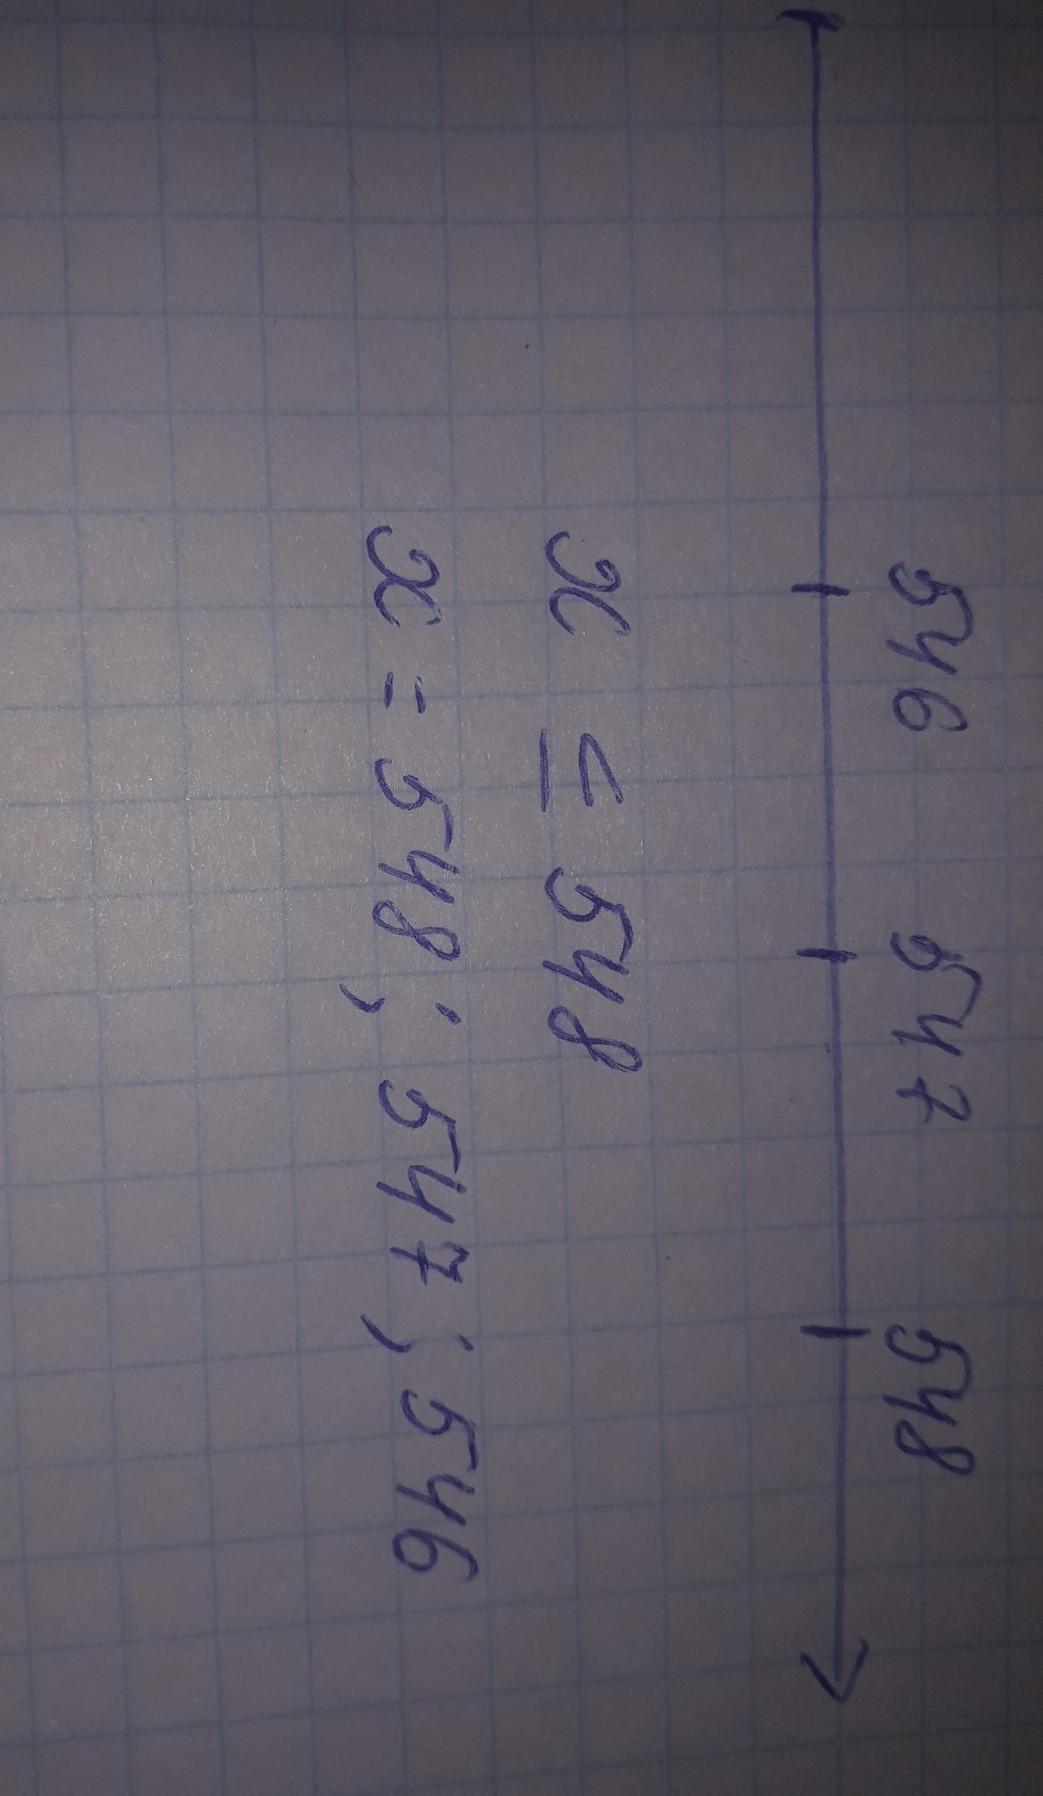 546 547 548
x ≤ 548
x = 548; 547; 546